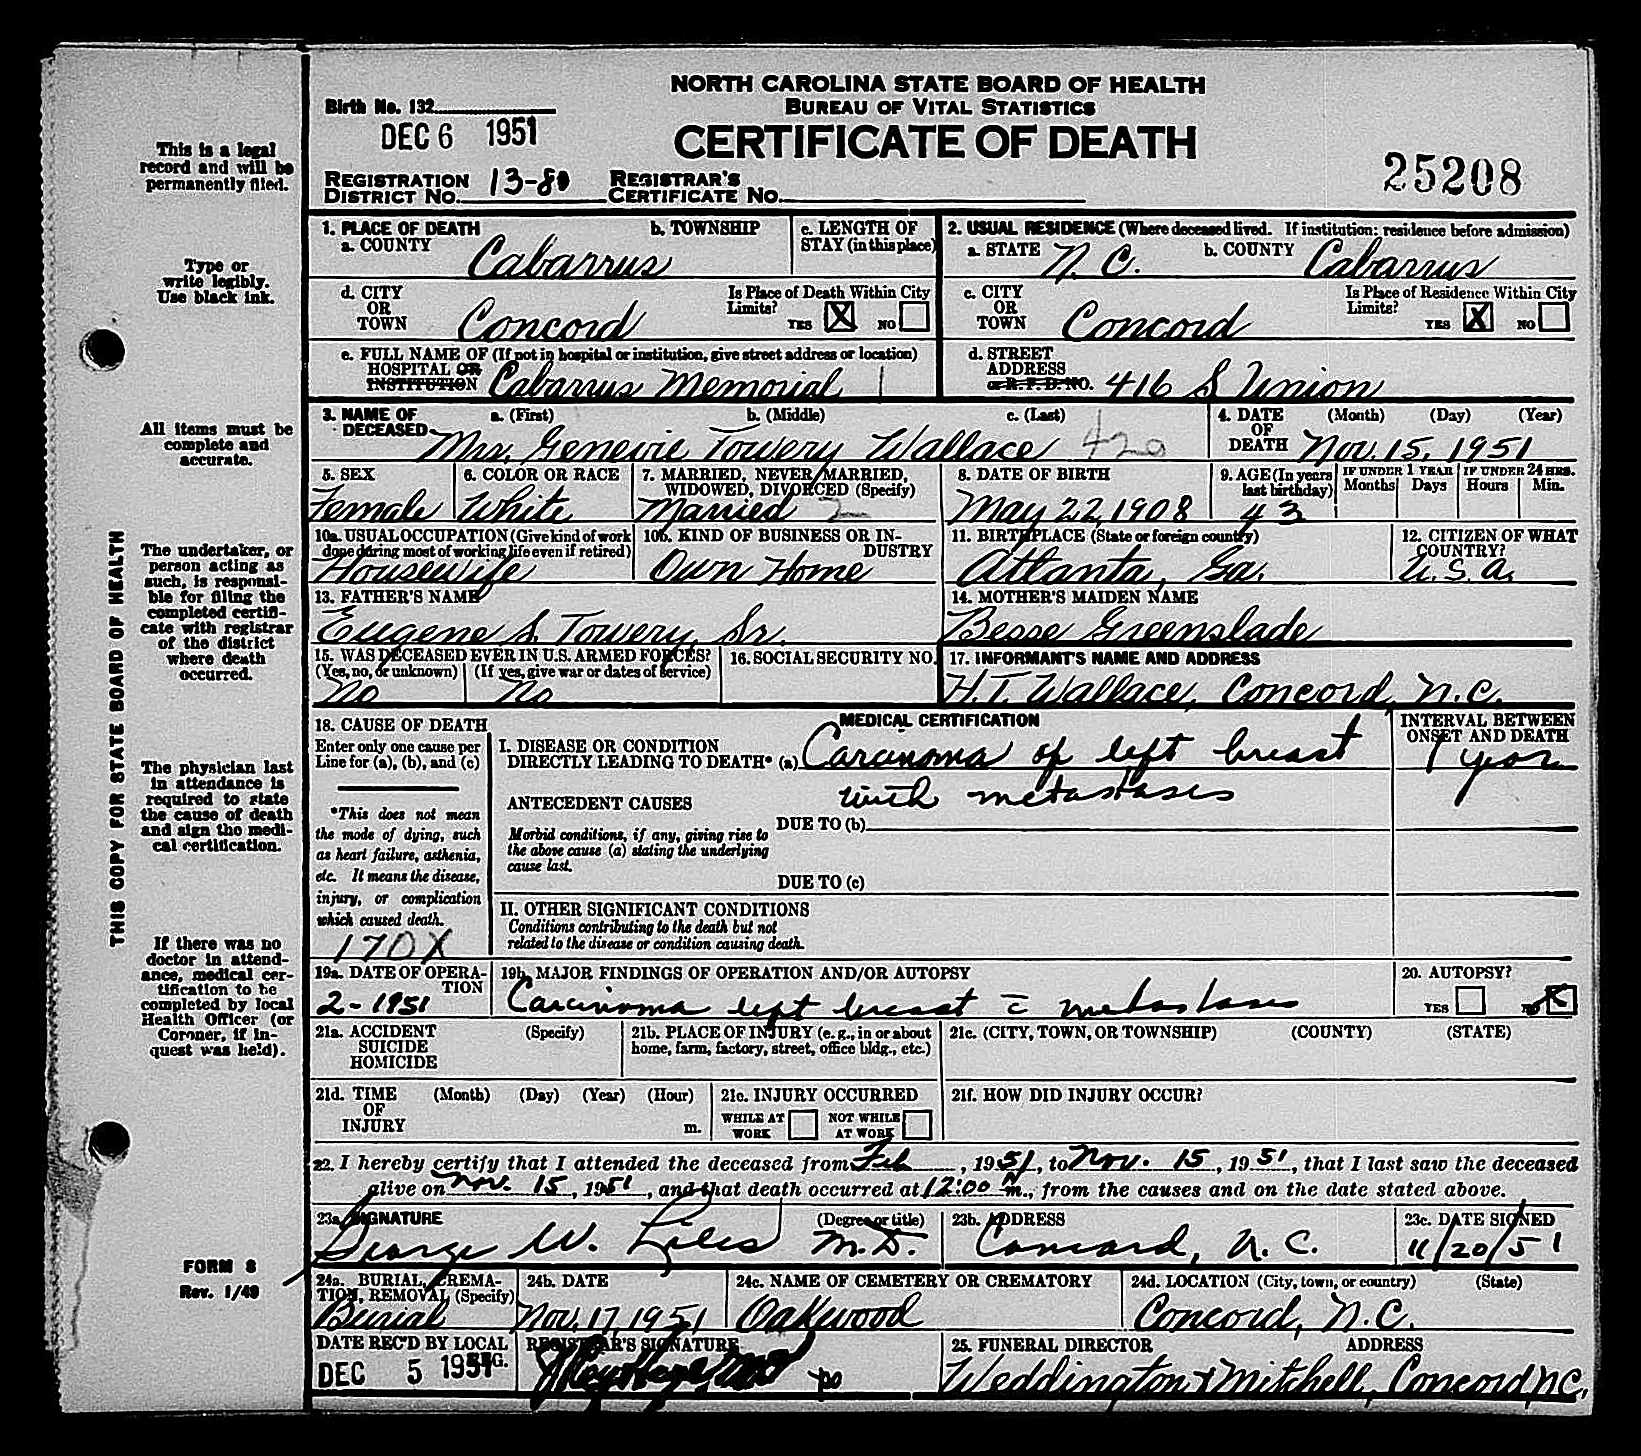 NORTH CAROLINA STATE BOARD OF HEALTH
BUREAU OF VITAL STATISTICS
CERTIFICATE OF DEATH
Birth No. 132
DEC 6 1951
25208
REGISTRATION DISTRICT No. 13-80 REGISTRAR'S CERTIFICATE No.
This is a legal
record and will be
permanently filed.
Type or
write legibly.
Use black ink.
All items must be
complete and
accurate.
The undertaker, or
person acting as
such, is responsi-
ble for filing the
completed certifi-
cate with registrar
of the district
where death
occurred.
The physician last
in attendance is
required to state
the cause of death
and sign the medi-
cal certification.
If there was no
doctor in attend-
ance, medical cer-
tification to be
completed by local
Health Officer (or
Coroner, if in-
quest was held).
FORM 8
Rev. 1/49
THIS COPY FOR STATE BOARD OF HEALTH
1. PLACE OF DEATH
a. COUNTY Cabarrus
b. TOWNSHIP
c. LENGTH OF
STAY (in this place)
2. USUAL RESIDENCE (Where deceased lived. If institution: residence before admission)
a. STATE N. C. b. COUNTY Cabarrus
d. CITY
OR
TOWN Concord
Is Place of Death Within City
Limits?
YES X NO
c. CITY
OR
TOWN Concord
Is Place of Residence Within City
Limits?
YES X NO
e. FULL NAME OF (If not in hospital or institution, give street address or location)
HOSPITAL OR
INSTITUTION Cabarrus Memorial 1
d. STREET
ADDRESS
or R. F. D. NO. 416 S Union
3. NAME OF
DECEASED
a. (First) b. (Middle) c. (Last)
Mrs. Genevie Towery Wallace 420
4. DATE
OF
DEATH
(Month) (Day) (Year)
Nov. 15, 1951
5. SEX
Female
6. COLOR OR RACE
White
7. MARRIED, NEVER MARRIED,
WIDOWED, DIVORCED (Specify)
Married 2
8. DATE OF BIRTH
May 22, 1908
9. AGE (In years
last birthday)
43
IF UNDER 1 YEAR
Months Days
IF UNDER 24 HRS.
Hours Min.
10a. USUAL OCCUPATION (Give kind of work
done during most of working life even if retired)
Housewife
10b. KIND OF BUSINESS OR IN-
DUSTRY
Own Home
11. BIRTHPLACE (State or foreign country)
Atlanta, Ga.
12. CITIZEN OF WHAT
COUNTRY?
U.S.A.
13. FATHER'S NAME
Eugene S. Towery, Sr.
14. MOTHER'S MAIDEN NAME
Besse Greenslade
15. WAS DECEASED EVER IN U.S. ARMED FORCES?
(Yes, no, or unknown) (If yes, give war or dates of service)
No No
16. SOCIAL SECURITY NO.
17. INFORMANT'S NAME AND ADDRESS
H.T. Wallace, Concord, N.C.
18. CAUSE OF DEATH
Enter only one cause per
Line for (a), (b), and (c)
*This does not mean
the mode of dying, such
as heart failure, asthenia,
etc. It means the disease,
injury, or complication
which caused death.
170X
MEDICAL CERTIFICATION
I. DISEASE OR CONDITION
DIRECTLY LEADING TO DEATH* (a) Carcinoma of left breast
with metastases
INTERVAL BETWEEN
ONSET AND DEATH
1 year
ANTECEDENT CAUSES
DUE TO (b)
Morbid conditions, if any, giving rise to
the above cause (a) stating the underlying
cause last.
DUE TO (c)
II. OTHER SIGNIFICANT CONDITIONS
Conditions contributing to the death but not
related to the disease or condition causing death.
19a. DATE OF OPERA-
TION
2-1951
19b. MAJOR FINDINGS OF OPERATION AND/OR AUTOPSY
Carcinoma left breast c̄ metastases
20. AUTOPSY?
YES NO X
21a. ACCIDENT
SUICIDE
HOMICIDE
(Specify)
21b. PLACE OF INJURY (e. g., in or about
home, farm, factory, street, office bldg., etc.)
21c. (CITY, TOWN, OR TOWNSHIP) (COUNTY) (STATE)
21d. TIME
OF
INJURY
(Month) (Day) (Year) (Hour)
m.
21e. INJURY OCCURRED
WHILE AT
WORK
NOT WHILE
AT WORK
21f. HOW DID INJURY OCCUR?
22. I hereby certify that I attended the deceased from Feb, 1951, to Nov. 15, 1951, that I last saw the deceased
alive on Nov. 15, 1951, and that death occurred at 12:00 N m., from the causes and on the date stated above.
23a. SIGNATURE (Degree or title)
George W. Liles M.D.
23b. ADDRESS
Concord, N.C.
23c. DATE SIGNED
11/20/51
24a. BURIAL, CREMA-
TION, REMOVAL (Specify)
Burial
24b. DATE
Nov. 17, 1951
24c. NAME OF CEMETERY OR CREMATORY
Oakwood
24d. LOCATION (City, town, or county) (State)
Concord, N.C.
DATE REC'D BY LOCAL
REG.
DEC 5 1951
REGISTRAR'S SIGNATURE
25. FUNERAL DIRECTOR ADDRESS
Weddington & Mitchell, Concord, N.C.